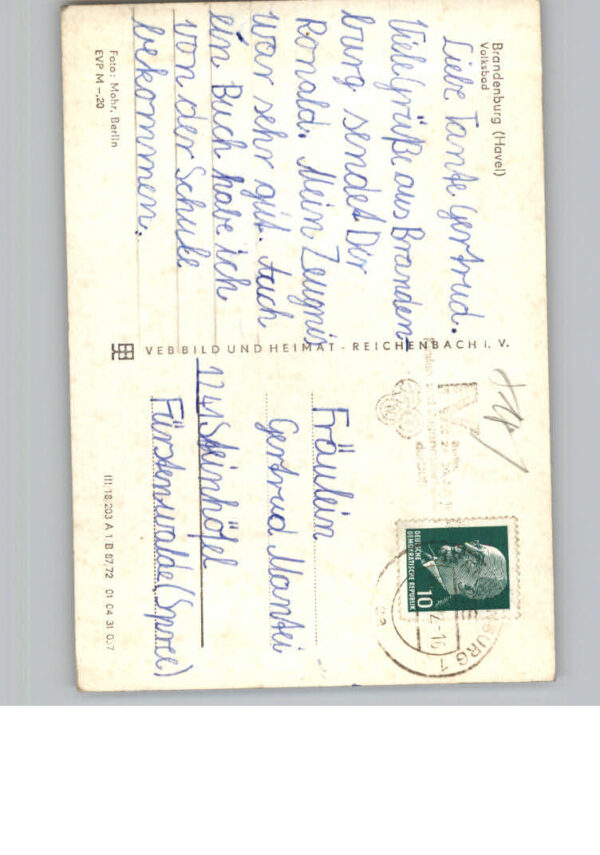 Brandenburg (Havel)
Volksbad
Liebe Tante Gertrud.
Viele Grüße aus Branden
burg sendet Dir
Ronald. Mein Zeugnis
war sehr gut. Auch
ein Buch habe ich
von der Schule
bekommen.
Foto: Mohr, Berlin
EVP M –,20
VEB BILD UND HEIMAT - REICHENBACH i. V.
DEUTSCHE
DEMOKRATISCHE REPUBLIK
10
BURG 1
Fräulein
Gertrud Mantei
1241 Steinhöfel
Fürstenwalde (Spree)
III 18 203 A 1 B 87,72 01 04 31 037